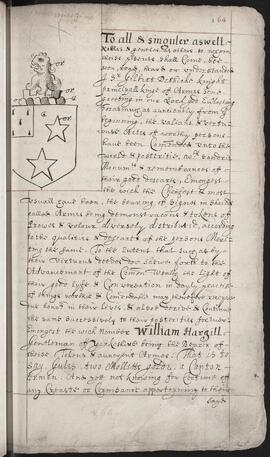 164
To all & singuler aswell
Nobles & gentles as others to whom
these presents shall Come, bee
seen, read, heard or understanded
Sr Gilbert Dethicke knight
principall king of Armes send
greeting in our Lord god Everlasting
Forasmuch as auncientlye from ye
beginning, the valiant & vertu-
ous Actes of worthy persons
have been Comended unto the
world & posterities, with sundrie
Monuments & remembrances of
their good deserts, Emongest
the which the Chiefest & most
usuall hath been, the bearing of Signes in Shields
called Armes being demonstracions & tokens of
prowes & valour diversly distributed, according
to the qualities & deserts of the persons Merit-
ing the same. To the Entent that such as by
their Vertuous deedes doo shewe forth to the
Advancement of the Comon Weall, the light of
their good lyfe & Conversation in dayly practise
of things worthie & Comendable may therefore receyve
due honor in their lives, & also derive & Continue
the same successively to their posterities for ever
Emongest the wich Nomber William Hargill
Gentleman of Yorkshire being the Bearer of
those Tokens & auncyent Armes. That is to
say, Gules two Mollettes golde, a Canton
Ermen. And yet not knowing for Certeine of
any Creaste or Cognisance appertayning to their
sayd
or.
or.